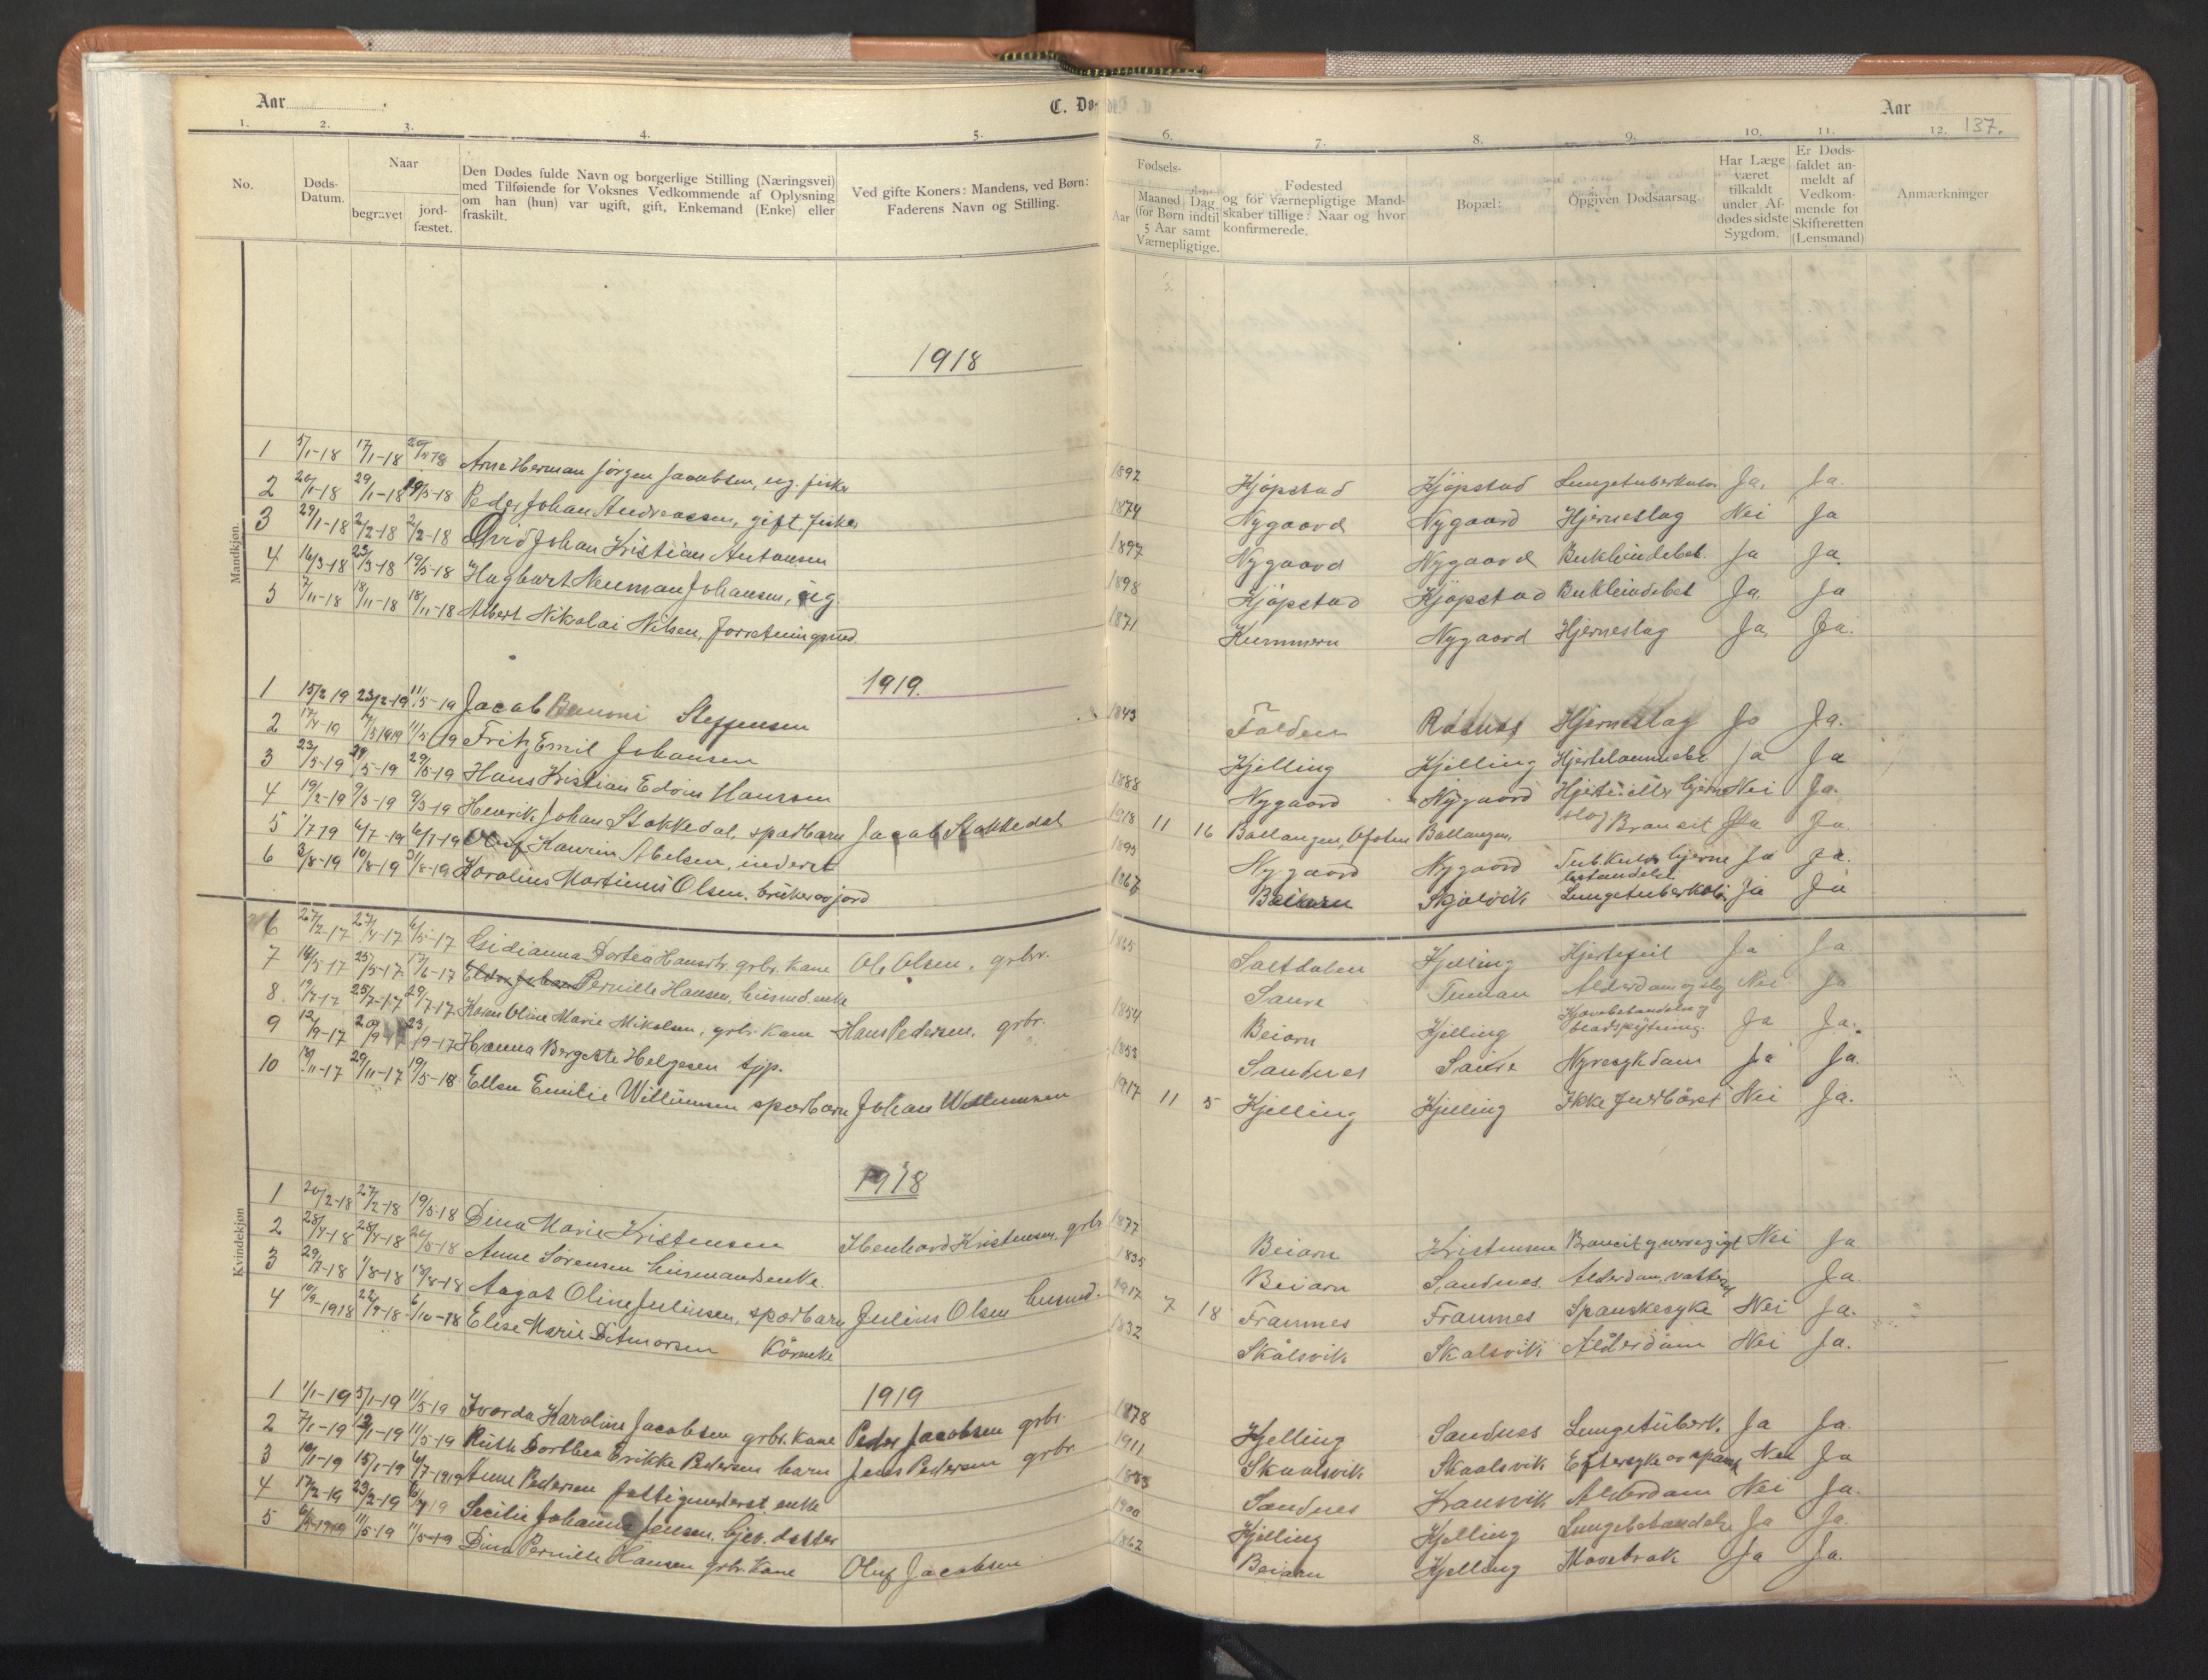 Aar C. Dø Aar
137.
1. 2. 3. 4. 5. 6. 7. 8. 9. 10. 11. 12.
No. Døds-Datum. Naar begravet jord-fæstet. Den Dødes fulde Navn og borgerlige Stilling (Næringsvei) med Tilføiende for Voksnes Vedkommende af Oplysning om han (hun) var ugift, gift, Enkemand (Enke) eller fraskilt. Ved gifte Koners: Mandens, ved Børn: Faderens Navn og Stilling. Fødsels- Aar Maaned Dag (for Børn indtil 5 Aar samt Værnepligtige. Fødested og for værnepligtige Mand-skaber tillige: Naar og hvor konfirmerede. Bopæl: Opgiven Dødsaarsag. Har Læge været tilkaldt under Af-dødes sidste Sygdom. Er Døds-faldet an-meldt af Vedkom-mende for Skifteretten (Lensmand) Anmærkninger
Mandkjøn.
1918
1 5/1-18 17/1-18 Arne Herman Jørgen Jacobsen, ug. fisker 1892 Kjøpstad Kjøpstad Lungetuberkulos Ja. Ja.
2 20/1-18 29/1-18 19/5-18 Peder Johan Andreassen, gift, fisker 1874 Nygaard Nygaard Hjerneslag Nei Ja
3 29/1-18 2/2-18 2/2-18 Johan Kristian Antonsen 1897 Nygaard Nygaard Bukhindebet. Ja Ja.
4 16/3-18 23/3-18 19/5-18 Hagbart Neuman Johansen, ug 1898 Kjøpstad Kjøpstad Bukhindebet Ja. Ja
5 7/11-18 18/11-18 18/11-18 Albert Nikolai Nilsen, forretningsmd. 1871 Nygaard Hjerneslag Ja. Ja.
1919.
1 15/2 19 23/2-19 11/5-19 Jacob Benoni Steffensen 1843 Folden Hjerneslag Ja Ja.
2 11/5 19 Fritz Emil Johansen Kjelling Kjelling Hjertelammelse Ja Ja
3 23/5-19 29/5-19 29/5-19 Hans Kristian Edvin Hanssen 1888 Nygaard Nygaard Hjerte eller hjerne slag Nei Ja.
4 19/2-19 9/3-19 9/3-19 Henrik Johan Stokkedal, spædbarn Jacob Stokkedal 1918 11 16 Ballangen, Ofoten Ballangen, Broncit Ja Ja.
5 1/7 19 6/7-19 Kaurin Abelsen, inderst 1899 Nygaard Nygaard Tub.kulos hjerne betændelse Ja Ja.
6 3/8-19 10/8-19 31/8-19 Karolius Martinus Olsen, bruker av jord 1867 Beiarn Skjelvik Lungetuberkulos Ja Ja
6 27/2-17 6/5-17 Dortea Hansdtr. grbr. kone Ole Olsen, grbr. 1865 Saltdalen Kjelling Hjertefeil Ja Ja.
7 14/5-17 25/5-17 17/6-17 Pernille Hansen, husmd. enke Tuman Nei Ja.
8 19/7-17 25/7-17 29/7-17 Karen Oline Marie Mikalsen, grbr. kone Hans Pedersen, grbr. 1854 Beiarn Kjelling Ja Ja.
9 12/9-17 20/9 23/9-17 Hanna Bergette Helgesen tjp. 1853 Sandnes Nyresykdom Ja Ja.
10 29/11-17 19/5-18 Ellen Emilie Willumsen spædbarn Johan Willumsen 1917 11 5 Kjelling Kjelling Ikke fuldbåret Nei Ja.
Kvindekjøn
1918
1 20/2-18 27/2-18 19/5-18 Dina Marie Kristensen Ibenhard Kristensen, grbr. 1877 Beiarn Kristensen Nei Ja
2 25/4-18 28/4-18 Anne Sørensen husmandsenke. 1835 Beiarn Sandnes. Alderdom, Ja.
3 29/7-18 1/8-18 18/8-18 Aagot Oline Juliussen, spædbarn Julius Olsen husmd. 1917 7 18 Framnes Framnes Spanskesyke Nei Ja.
4 19/9-1918 22/9-18 6/10-18 Elese Marie Ditmarsen Kårenke 1832 Skålsvik Skalsvik Alderdom Nei Ja.
1919
1 1/1-19 5/1-19 11/5-19 Ivarda Karoline Jacobsen grbr. kone Peder Jacobsen grbr. 1878 Kjelling Sandnes Lungetuberk. Ja Ja.
2 7/1-19 12/1-19 11/5-19 Ruth Dorthea Erikke Pedersen barn Jens Pedersen grbr. 1911 Skaalsvik Skaalsvik Eftersyke av spansk Nei Ja
3 10/1-19 15/1-19 6/7-1919 Anne Pedersen fattigunderst. enke Sandnes Alderdom Nei Ja.
4 17/2-19 23/2-19 6/7 19 Secilie Johanna Jensen, hjv. datter 1900 Kjelling Kjelling Lungebetændelse Ja Ja.
5 11/5-19 11/5-19 Dina Pernille Hansen grbr. kone Oluf Jacobsen 1862 Beiarn Kjelling Mavebrok Ja Ja.